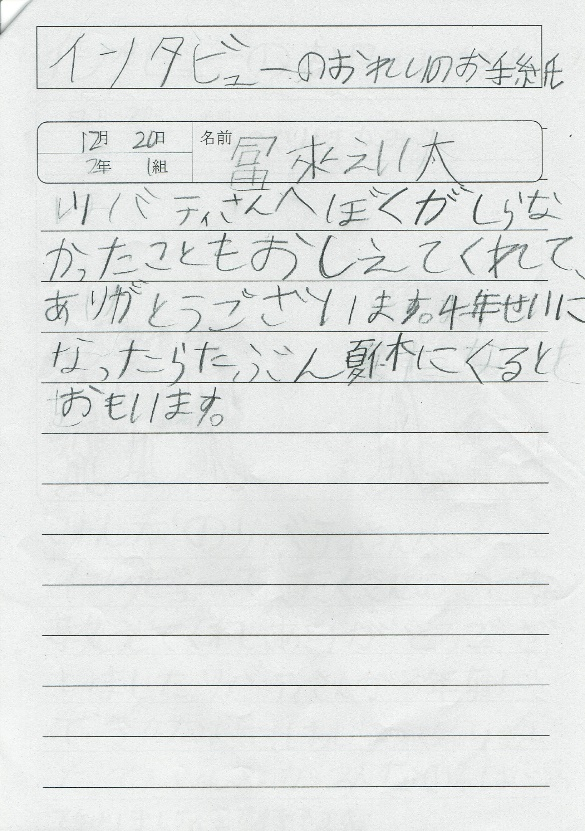 インタビューのおれいのお手紙
12月 20日 名前 冨来えい太
2年 1組
リバティさんへぼくがしらな
かったこともおしえてくれて、
ありがとうございます。4年せいに
なったらたぶん夏休にくると
おもいます。